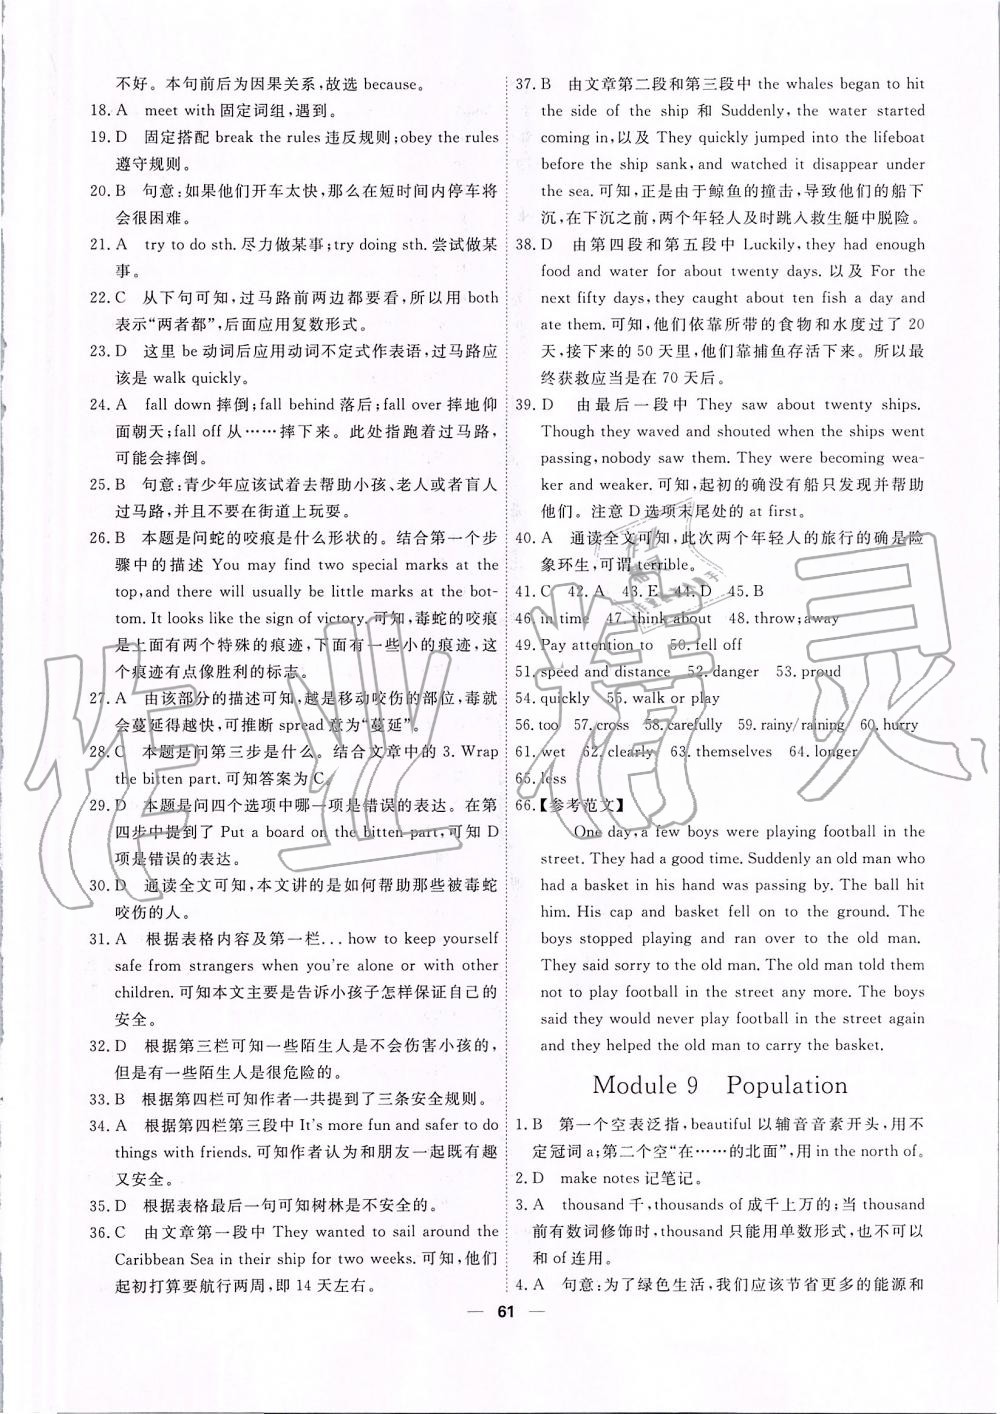 不好。本句前后为因果关系,故选 because.
18. A meet with 固定词组,遇到。
19. D 固定搭配 break the rules 违反规则;obey the rules
遵守规则。
20. B 句意:如果他们开车太快,那么在短时间内停车将
会很困难。
21. A try to do sth. 尽力做某事;try doing sth. 尝试做某
事。
22. C 从下句可知,过马路前两边都要看,所以用 both
表示“两者都”,后面应用复数形式。
23. D 这里 be 动词后应用动词不定式作表语,过马路应
该是 walk quickly。
24. A fall down 摔倒;fall behind 落后;fall over 摔地仰
面朝天;fall off 从……摔下来。此处指跑着过马路,
可能会摔倒。
25. B 句意:青少年应该试着去帮助小孩、老人或者盲人
过马路,并且不要在街道上玩耍。
26. B 本题是问蛇的咬痕是什么形状的。结合第一个步
骤中的描述 You may find two special marks at the
top,and there will usually be little marks at the bot-
tom. It looks like the sign of victory. 可知,毒蛇的咬痕
是上面有两个特殊的痕迹,下面有一些小的痕迹,这
个痕迹有点像胜利的标志。
27. A 由该部分的描述可知,越是移动咬伤的部位,毒就
会蔓延得越快,可推断 spread 意为“蔓延”。
28. C 本题是问第三步是什么。结合文章中的 3. Wrap
the bitten part. 可知答案为 C。
29. D 本题是问四个选项中哪一项是错误的表达。在第
四步中提到了 Put a board on the bitten part,可知 D
项是错误的表达。
30. D 通读全文可知,本文讲的是如何帮助那些被毒蛇
咬伤的人。
31. A 根据表格内容及第一栏...how to keep yourself
safe from strangers when you're alone or with other
children. 可知本文主要是告诉小孩子怎样保证自己的
安全。
32. D 根据第三栏可知一些陌生人是不会伤害小孩的,
但是有一些陌生人是很危险的。
33. B 根据第四栏可知作者一共提到了三条安全规则。
34. A 根据第四栏第三段中 It's more fun and safer to do
things with friends. 可知作者认为和朋友一起既有趣
又安全。
35. D 根据表格最后一句可知树林是不安全的。
36. C 由文章第一段中 They wanted to sail around the
Caribbean Sea in their ship for two weeks. 可知,他们
起初打算要航行两周,即 14 天左右。
37. B 由文章第二段和第三段中 the whales began to hit
the side of the ship 和 Suddenly, the water started
coming in,以及 They quickly jumped into the lifeboat
before the ship sank,and watched it disappear under
the sea. 可知,正是由于鲸鱼的撞击,导致他们的船下
沉,在下沉之前,两个年轻人及时跳入救生艇中脱险。
38. D 由第四段和第五段中 Luckily,they had enough
food and water for about twenty days. 以及 For the
next fifty days,they caught about ten fish a day and
ate them. 可知,他们依靠所带的食物和水度过了 20
天,接下来的 50 天里,他们靠捕鱼存活下来。所以最
终获救应当是在 70 天后。
39. D 由最后一段中 They saw about twenty ships.
Though they waved and shouted when the ships went
passing,nobody saw them. They were becoming wea-
ker and weaker. 可知,起初的确没有船只发现并帮助
他们。注意 D 选项末尾处的 at first。
40. A 通读全文可知,此次两个年轻人的旅行的确是险
象环生,可谓 terrible。
41. C 42. A 43. E 44. D 45. B
46. in time 47. think about 48. throw;away
49. Pay attention to 50. fell off
51. speed and distance 52. danger 53. proud
54. quickly 55. walk or play
56. too 57. cross 58. carefully 59. rainy/raining 60. hurry
61. wet 62. clearly 63. themselves 64. longer
65. less
66.【参考范文】
One day,a few boys were playing football in the
street. They had a good time. Suddenly an old man who
had a basket in his hand was passing by. The ball hit
him. His cap and basket fell on to the ground. The
boys stopped playing and ran over to the old man.
They said sorry to the old man. The old man told them
not to play football in the street any more. The boys
said they would never play football in the street again
and they helped the old man to carry the basket.
Module 9 Population
1. B 第一个空表泛指,beautiful 以辅音音素开头,用不
定冠词 a;第二个空“在……的北面”,用 in the north of。
2. D make notes 记笔记。
3. A thousand 千,thousands of 成千上万的;当 thousand
前有数词修饰时,thousand 只能用单数形式,也不可以
和 of 连用。
4. A 句意:为了绿色生活,我们应该节省更多的能源和
— 61 —
作业精灵